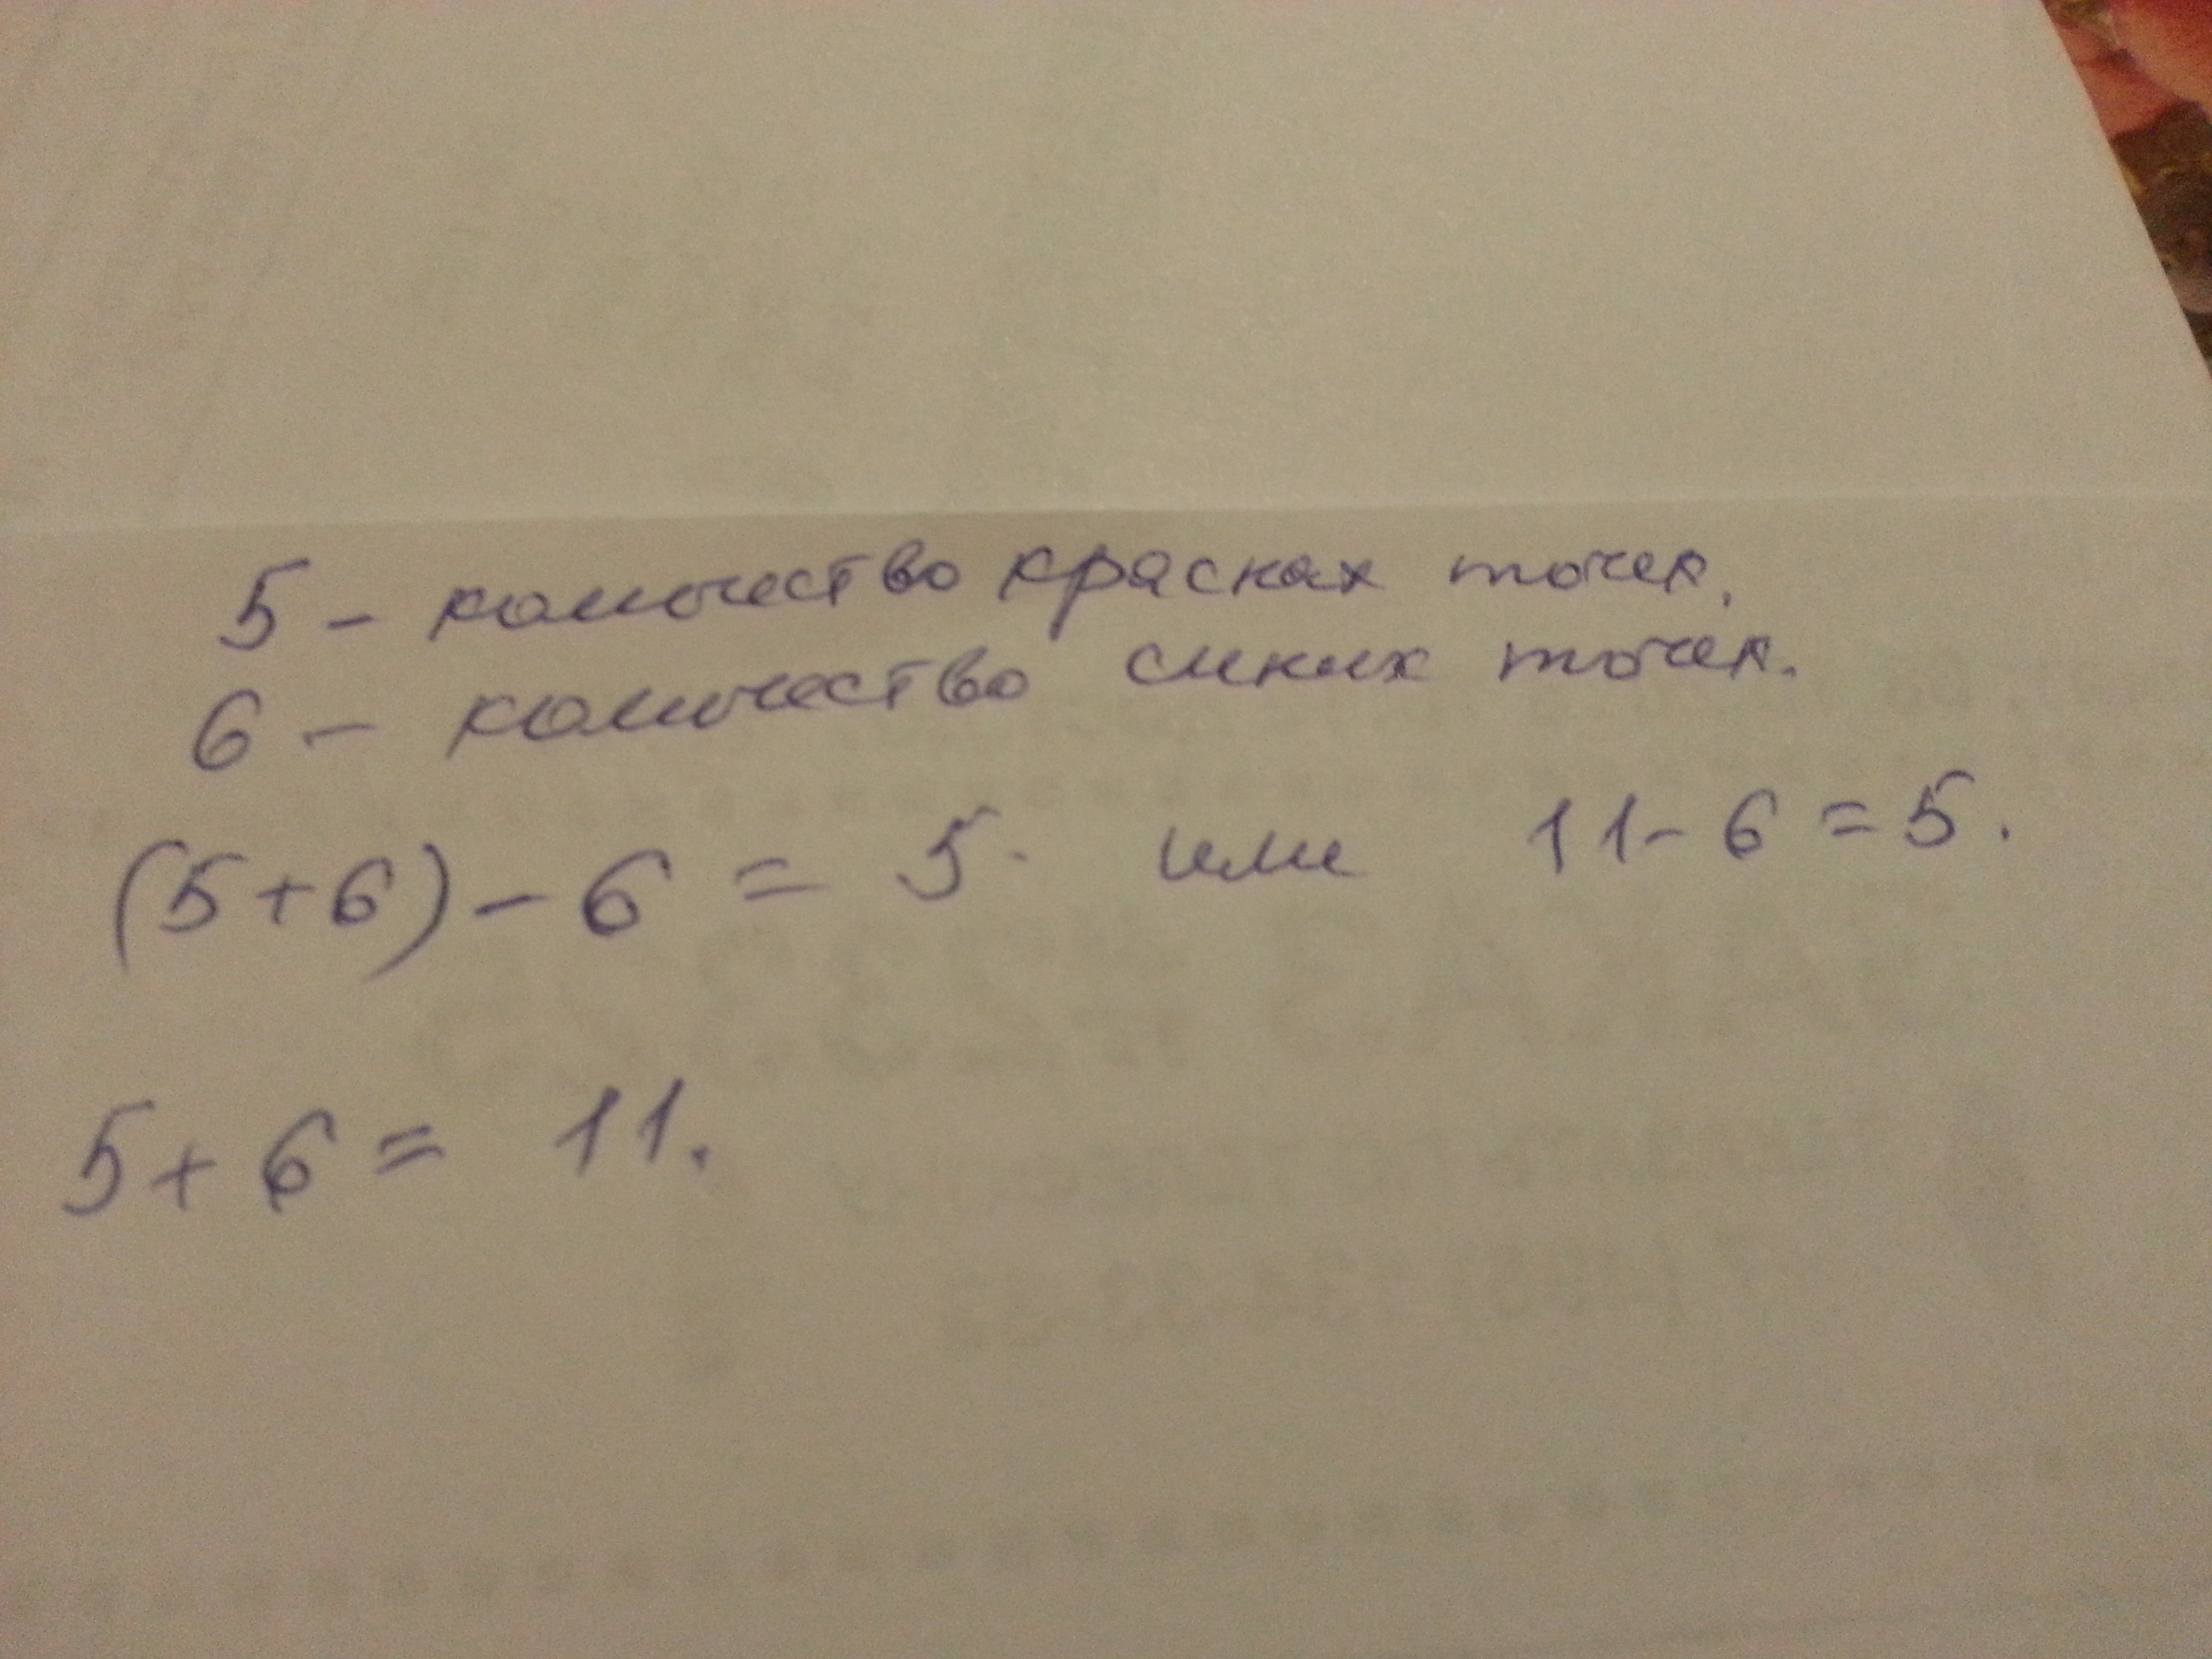 5 - количество красных точек.
6 - количество синих точек.
(5+6) - 6 = 5. или 11 - 6 = 5.
5 + 6 = 11.